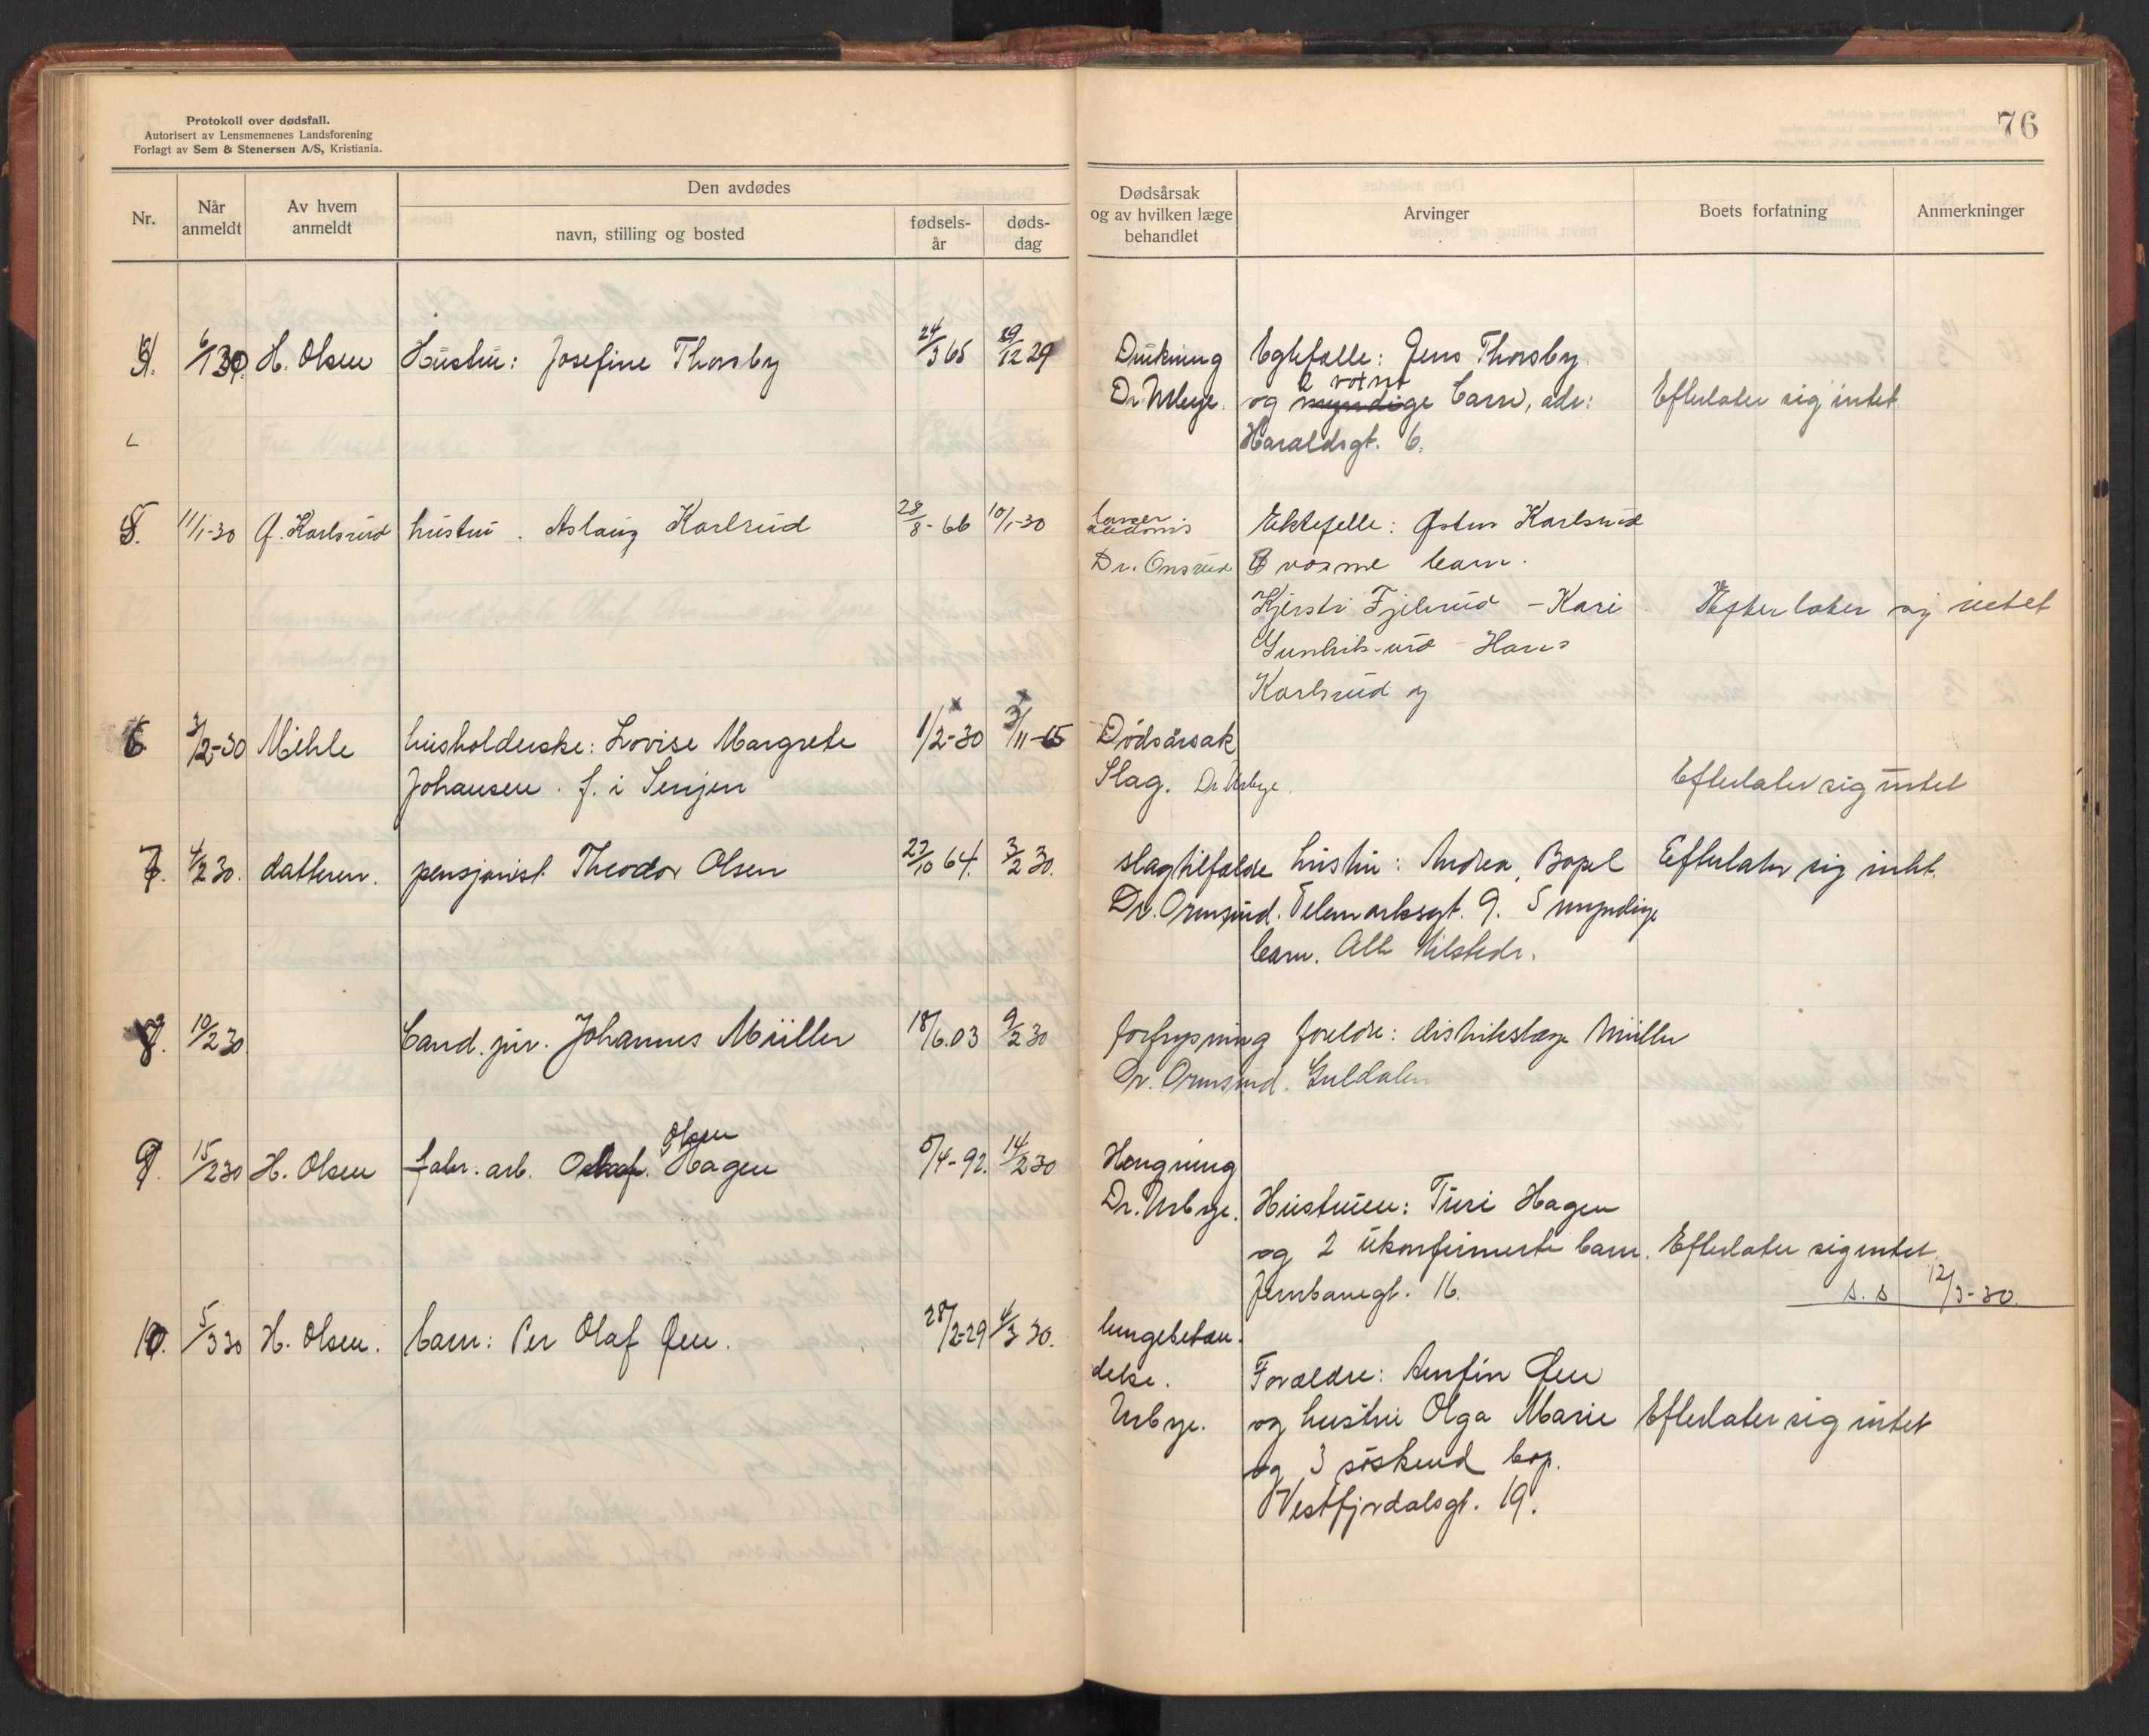 Protokoll over dødsfall.
Autorisert av Lensmennenes Landsforening
Forlagt av Sem & Stenersen A/S, Kristiania.
76
Nr.
Når anmeldt
Av hvem anmeldt
Den avdødes
navn, stilling og bosted
fødsels-år
døds-dag
Dødsårsak og av hvilken læge behandlet
Arvinger
Boets forfatning
Anmerkninger
4. 6/1 30. H. Olsen Hustru: Josefine Thorsby 24/3 65 29/12 29 Drukning Egtefælle: Jens Thorsby.
2 voxne
Dr. Urbye. og myndige barn, adr: Efterlater sig intet
Haraldsgt. 6.
5. 11/1-30 Ø. Karlsrud hustru. Aslaug Karlsrud 28/8-66 10/1-30 Ektefelle: Østen Karlsrud
Dr. Onsrud 8 voxne barn.
Kjersti - Kari Efterlater sig intet
Hans
Karlsrud og
6 3/2-30 Mihle husholderske: Lovise Margrete 1/2-30 3/11-65 Dødsårsak
Johansen. f. i Senjen Slag. Dr. Urbye. Efterlater sig intet
7. 4/2 30. datteren. pensjonist Theodor Olsen 22/10 64. 3/2 30. slagtilfælde hustru: Andrea, Bopel Efterlater sig intet.
Dr. Ormsrud. Telemarksgt. 9. 5 myndige
barn. Alle tilstede.
8. 10/2 30 Cand. jur. Johannes Müller 18/6.03 9/2 30 forfrysning foreldre: distriktslæge Müller
Dr. Ormsrud. Guldalen
Olsen
9. 15/2 30 H. Olsen fabr. arb. Olaf. Hagen 5/4-92. 14/2 30 Hengning
Dr. Urbye. Hustruen: Turi Hagen
og 2 ukonfirmerte barn. Efterlater sig intet.
Jernbanegt. 16. s. s 12/3-30.
10. 5/3 30 H. Olsen. barn: Per Olaf Øen. 28/2-29 4/3 30. lungebetæn-
delse. Forældre: Arnfin Øen
Urbye. og hustru Olga Marie Efterlater sig intet
og 3 søskend bop.
Vestfjordalsgt. 19.